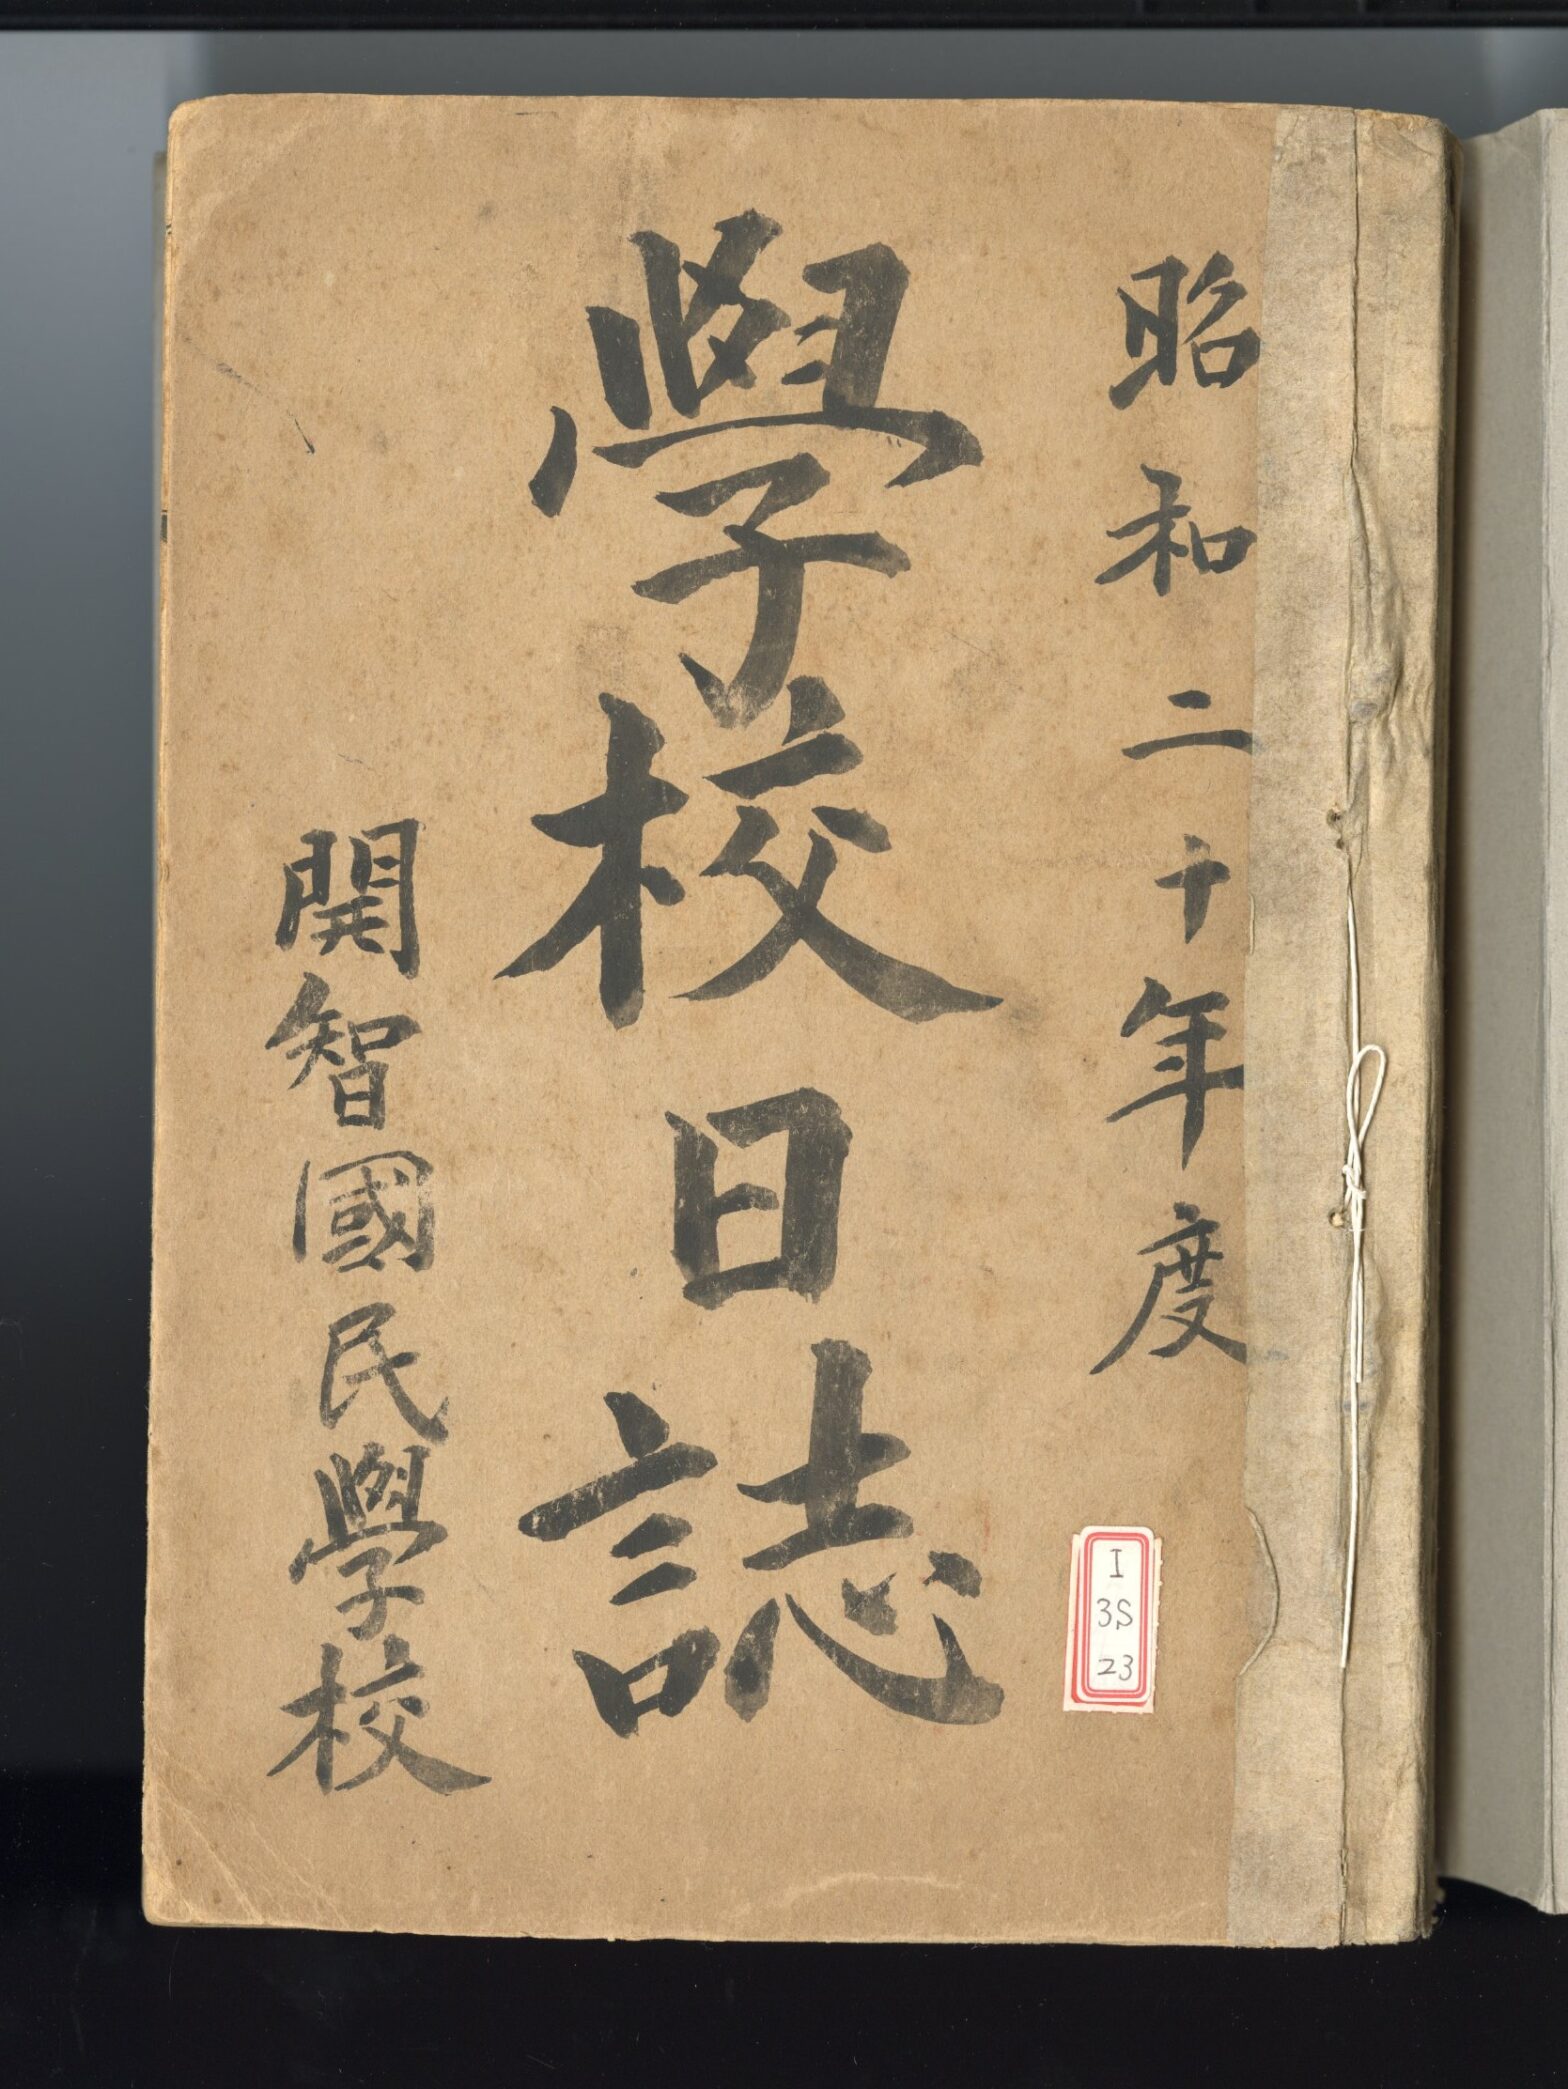 昭和二十年度
學校日誌
開智國民學校
I
3S
23